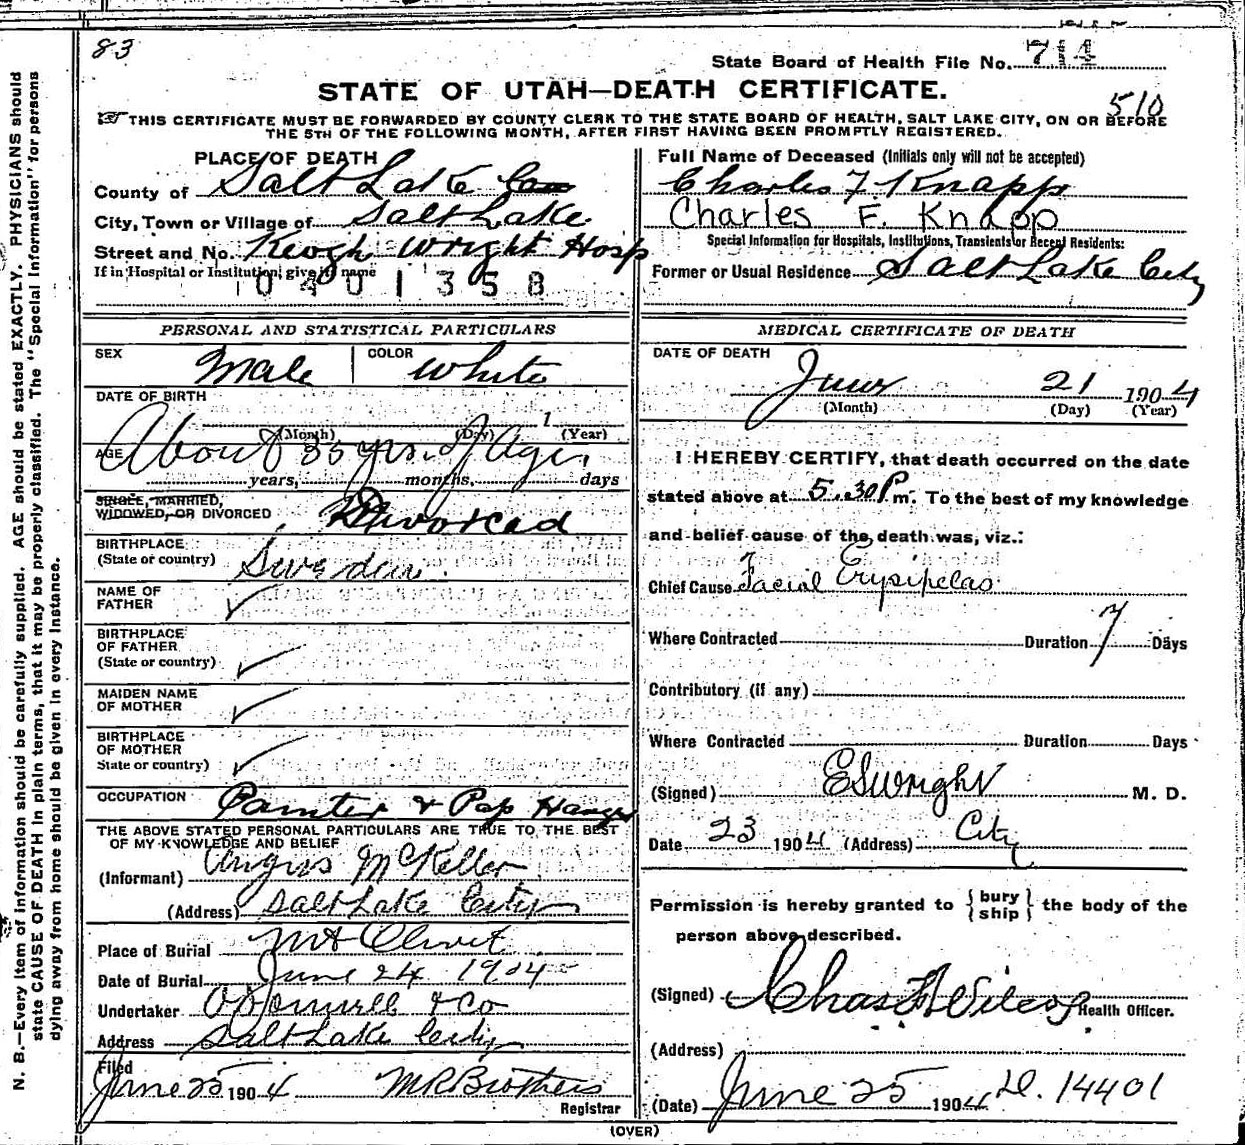 83
State Board of Health File No. 714
STATE OF UTAH—DEATH CERTIFICATE.
510
THIS CERTIFICATE MUST BE FORWARDED BY COUNTY CLERK TO THE STATE BOARD OF HEALTH, SALT LAKE CITY, ON OR BEFORE
THE 5TH OF THE FOLLOWING MONTH, AFTER FIRST HAVING BEEN PROMPTLY REGISTERED.
PLACE OF DEATH
County of Salt Lake Co
City, Town or Village of Salt Lake
Street and No. Keogh Wright Hosp
If in Hospital or Institution, give its name
0401358
Full Name of Deceased (Initials only will not be accepted)
Charles F Knapp
Charles F. Knapp
Special Information for Hospitals, Institutions, Transients or Recent Residents:
Former or Usual Residence Salt Lake City
PERSONAL AND STATISTICAL PARTICULARS
SEX Male COLOR White
DATE OF BIRTH
(Month) (Day) 1 (Year)
AGE About 35 yrs. of Age.
years, months, days
SINGLE, MARRIED,
WIDOWED, OR DIVORCED Divorced
BIRTHPLACE
(State or country) Sweden.
NAME OF
FATHER ✓
BIRTHPLACE
OF FATHER
(State or country) ✓
MAIDEN NAME
OF MOTHER ✓
BIRTHPLACE
OF MOTHER
State or country) ✓
OCCUPATION Painter & Pap Hanger
THE ABOVE STATED PERSONAL PARTICULARS ARE TRUE TO THE BEST
OF MY KNOWLEDGE AND BELIEF
(Informant) Angus McKeller
(Address) Salt Lake City
Place of Burial Mt Olivet
Date of Burial June 24 1904
Undertaker & Co
Address Salt Lake City
Filed
June 25 1904 M R Brothers
Registrar
MEDICAL CERTIFICATE OF DEATH
DATE OF DEATH
June 21 1904
(Month) (Day) (Year)
I HEREBY CERTIFY, that death occurred on the date
stated above at 5.30 P m. To the best of my knowledge
and belief cause of the death was, viz.:
Chief Cause Facial Erysipelas
Where Contracted Duration 7 Days
Contributory (if any)
Where Contracted Duration Days
(Signed) E S Wright M. D.
Date 23 1904 (Address) City
Permission is hereby granted to { bury ship } the body of the
person above described.
(Signed) Chas F Wilcox Health Officer.
(Address)
(Date) June 25 1904 D. 14401
(OVER)
N. B.—Every item of information should be carefully supplied. AGE should be stated EXACTLY. PHYSICIANS should
state CAUSE OF DEATH in plain terms, that it may be properly classified. The "Special Information" for persons
dying away from home should be given in every instance.